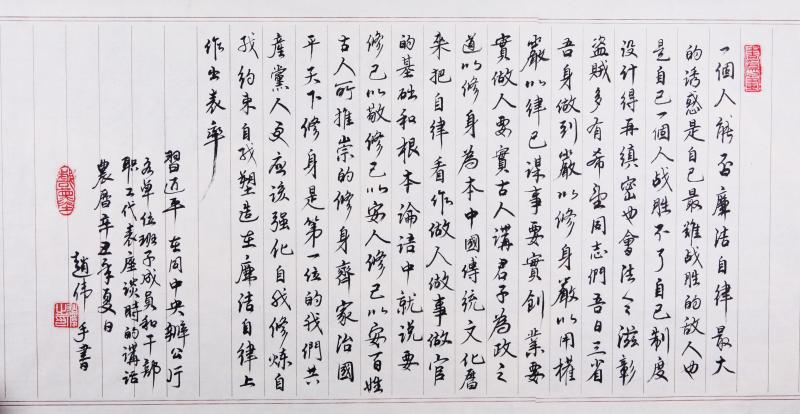 一個人能否廉洁自律最大
的诱惑是自己最难战胜的敌人也
是自己一個人战胜不了自己制度
设计得再縝密也會法令滋彰
盜賊多有希望同志們吾日三省
吾身做到嚴以修身嚴以用權
嚴以律己謀事要實創業要
實做人要實古人講君子為政之
道以修身為本中國傳統文化歷
来把自律看作做人做事做官
的基础和根本論语中就说要
修己以敬修己以安人修己以安百姓
古人所推崇的修身齊家治國
平天下修身是第一位的我們共
產黨人更应该强化自我修炼自
我約束自我塑造在廉洁自律上
作出表率
習近平在同中央辦公厅
各单位班子成員和干部
职工代表座談時的講话
農曆辛丑年夏日
趙伟手書